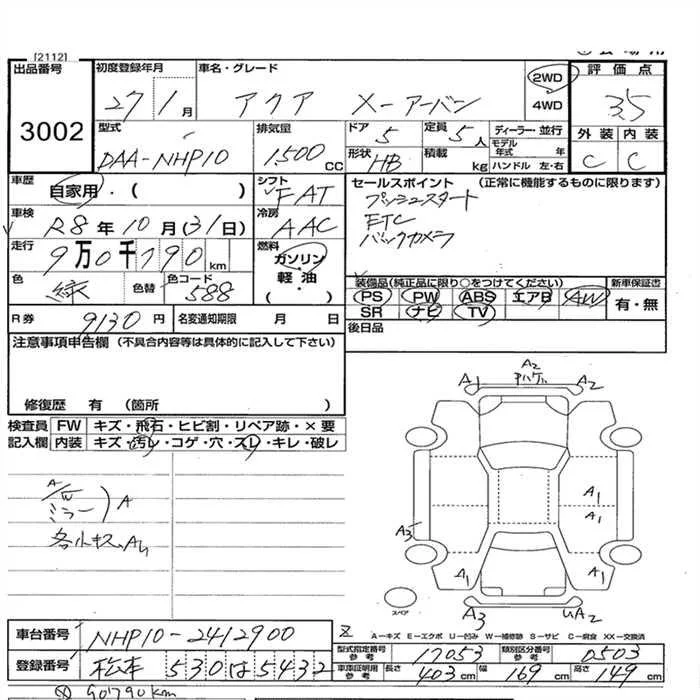 [2112]
出品番号
3002
初度登録年月
27 1月
車名・グレード
アクア X-アーバン
2WD
4WD
評価点
3.5
外装 内装
C C
型式
DAA-NHP10
排気量
1,500 CC
ドア
5
形状
HB
定員
5人
積載
kg
ディーラー・並行
モデル年式 年
ハンドル 左・右
車歴
自家用・( )
シフト
FAT
車検
R8年10月(31日)
冷房
AAC
走行
9万0千790 km
燃料
ガソリン
軽油
( )
色
緑
色替
色コード
588
R券
9130円
名変通知期限 月 日
セールスポイント (正常に機能するものに限ります)
プッシュスタート
ETC
バックカメラ
装備品(純正品に限り○をつけてください)
新車保証書
PS PW ABS エアB AW
SR ナビ TV
有・無
後日品
注意事項申告欄 (不具合内容等は具体的に記入して下さい)
修復歴 有 (箇所 )
検査員 FW キズ・飛石・ヒビ割・リペア跡・×要
記入欄 内装 キズ・汚レ・コゲ・穴・スレ・キレ・破レ
A/W
ミラー ) A
各小キズ、A
A1 A2 A2
A1
A1
A3
A1 A1
A3 UA2
スペア
A−キズ E−エクボ U−凹み W−補修跡 S−サビ C−腐食 XX−交換済
車台番号
NHP10-2412900
登録番号
松本 530 は 5432
型式指定番号参考
17053
類別区分番号参考
0503
車庫証明用参考
長さ 403cm 幅 169cm 高さ 149cm
90790km